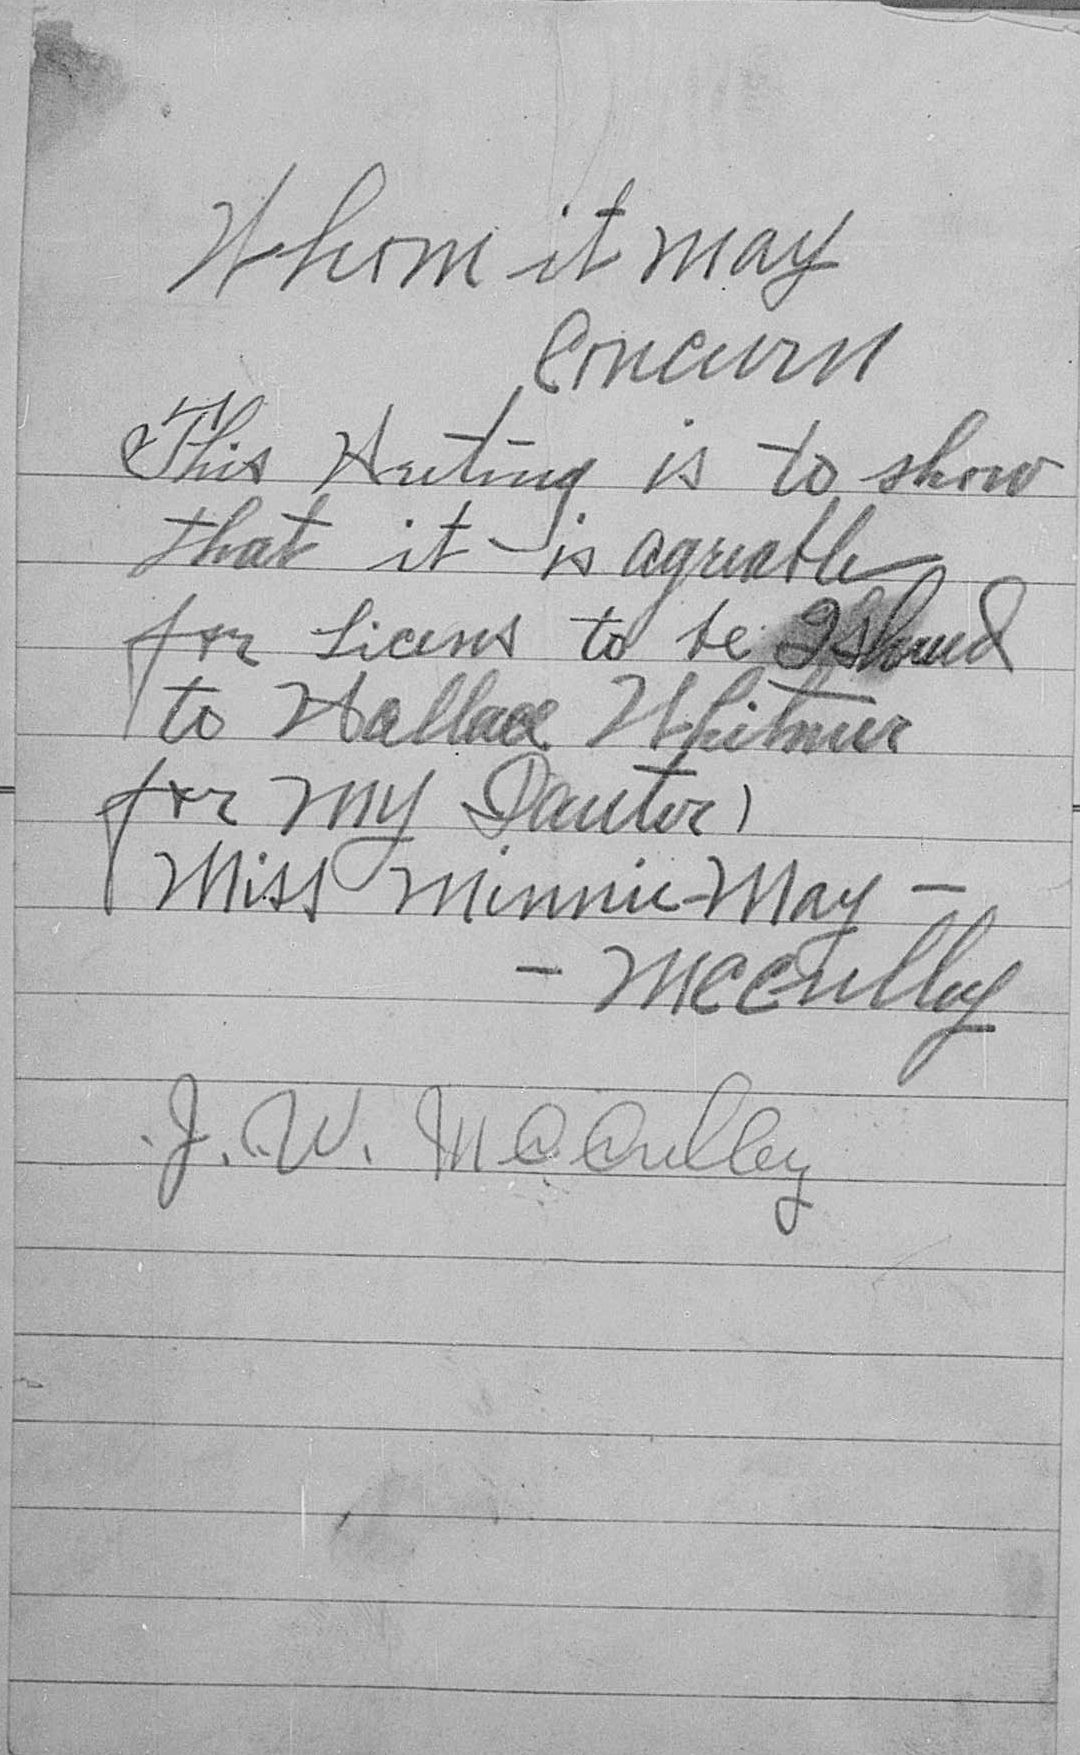 Whom it may
Concurn
This Writing is to show
that it is agreable
for Licens to be Ishued
to Wallace Whitmer
for my Dauter)
Miss Minnie May -
- McCulley
J. W. McCulley